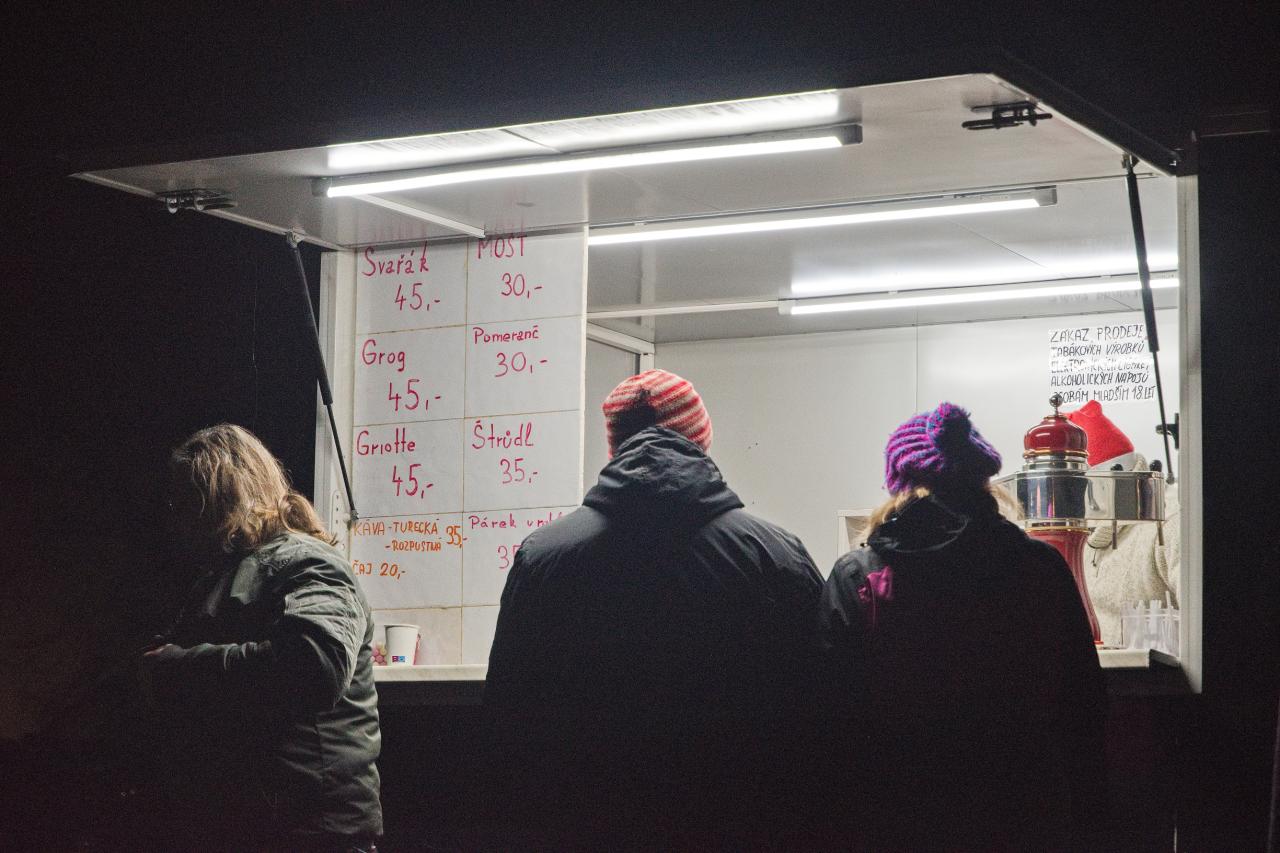 Svařák
45,-
Grog
45,-
Griotte
45,-
KÁVA - TURECKÁ 35,-
- ROZPUSTNÁ
ČAJ 20,-
MOŠT
30,-
Pomeranč
30,-
Štrůdl
35,-
Párek v
ZÁKAZ PRODEJE
TABÁKOVÝCH VÝROBKŮ
ALKOHOLICKÝCH NÁPOJŮ
OSOBÁM MLADŠÍM 18 LET